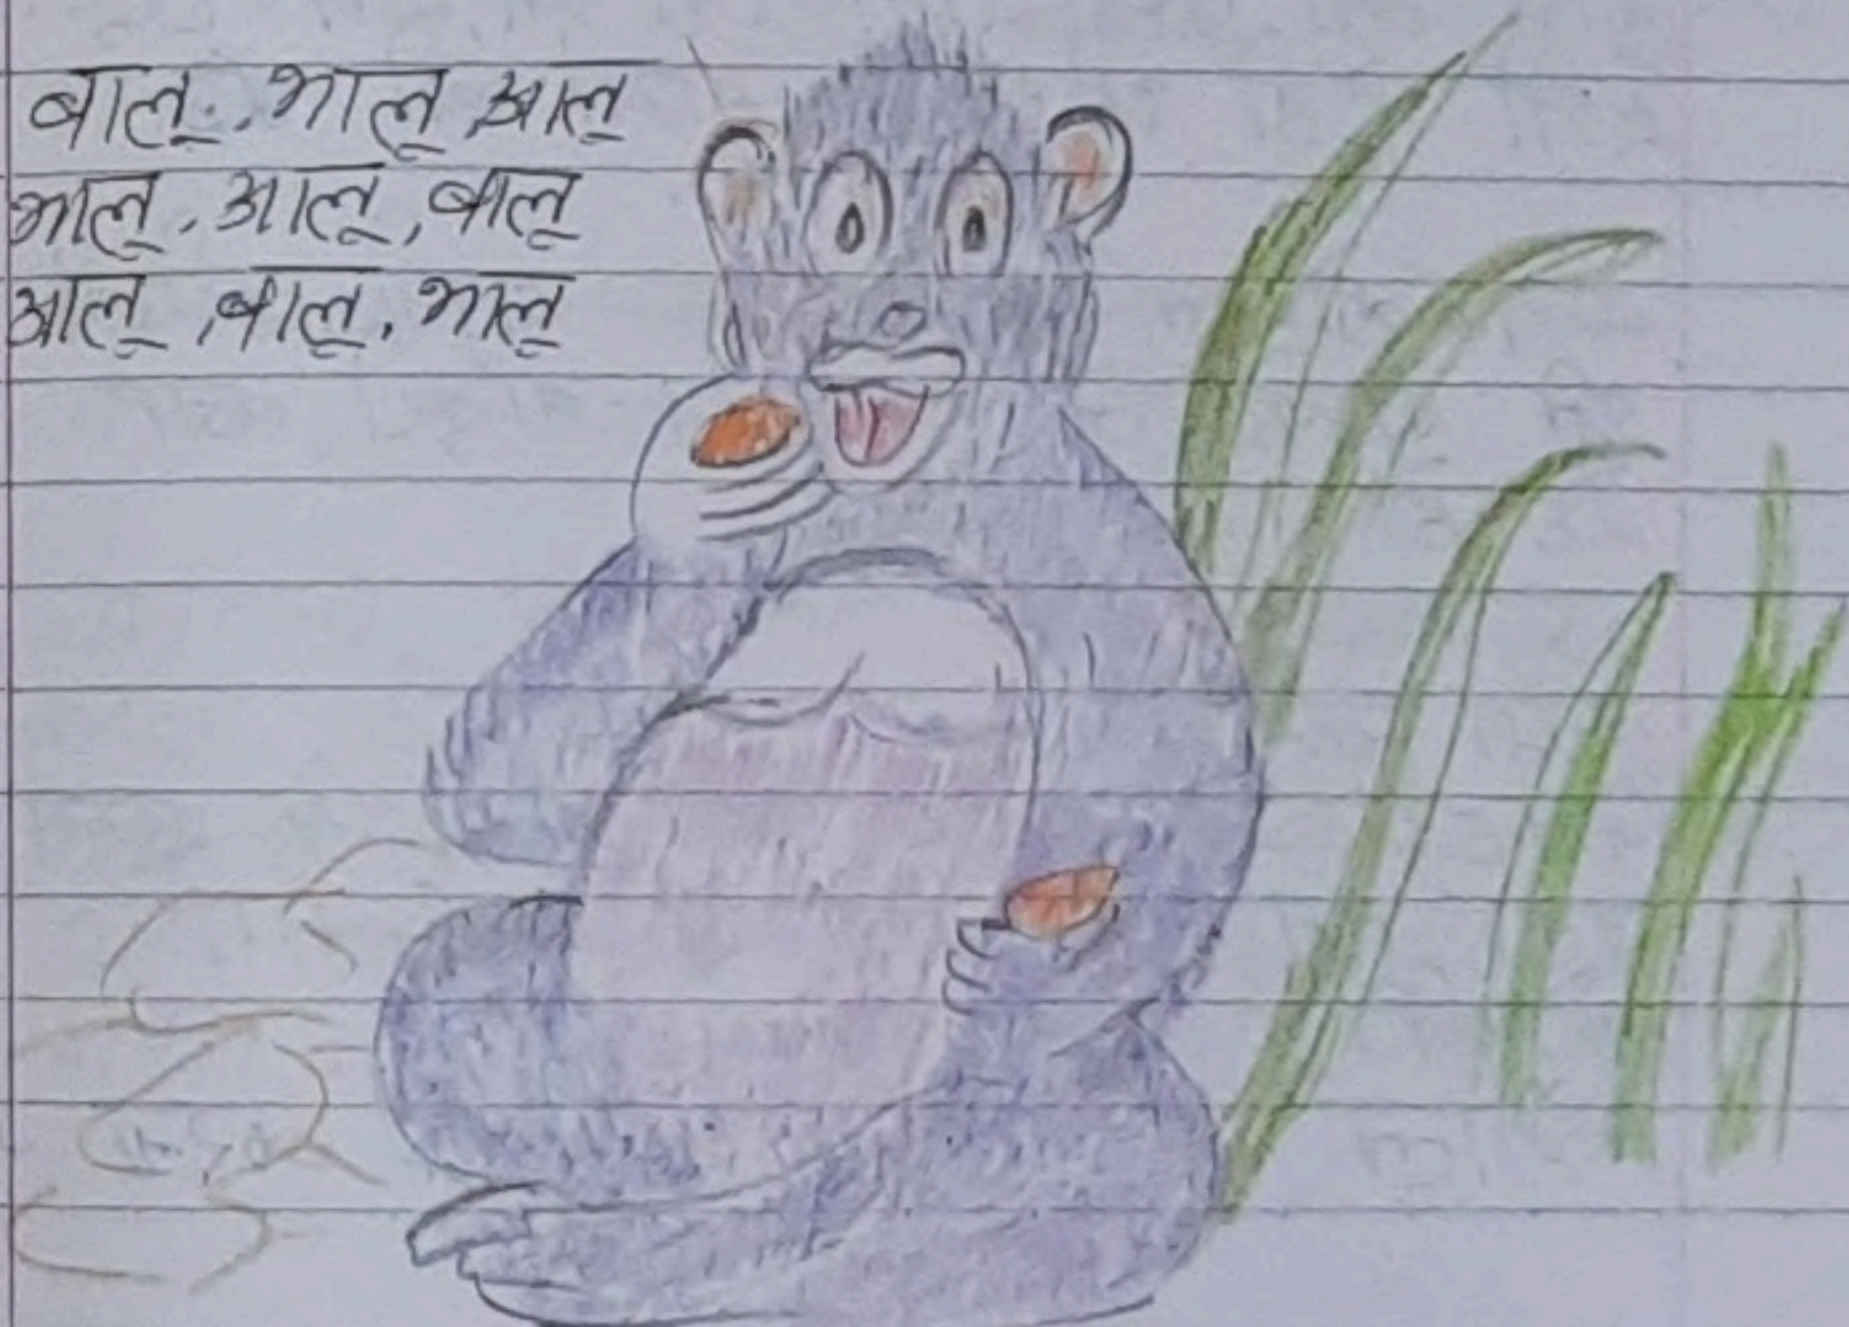 बालू, भालू, आलू
भालू, आलू, बालू
आलू, बालू, भालू